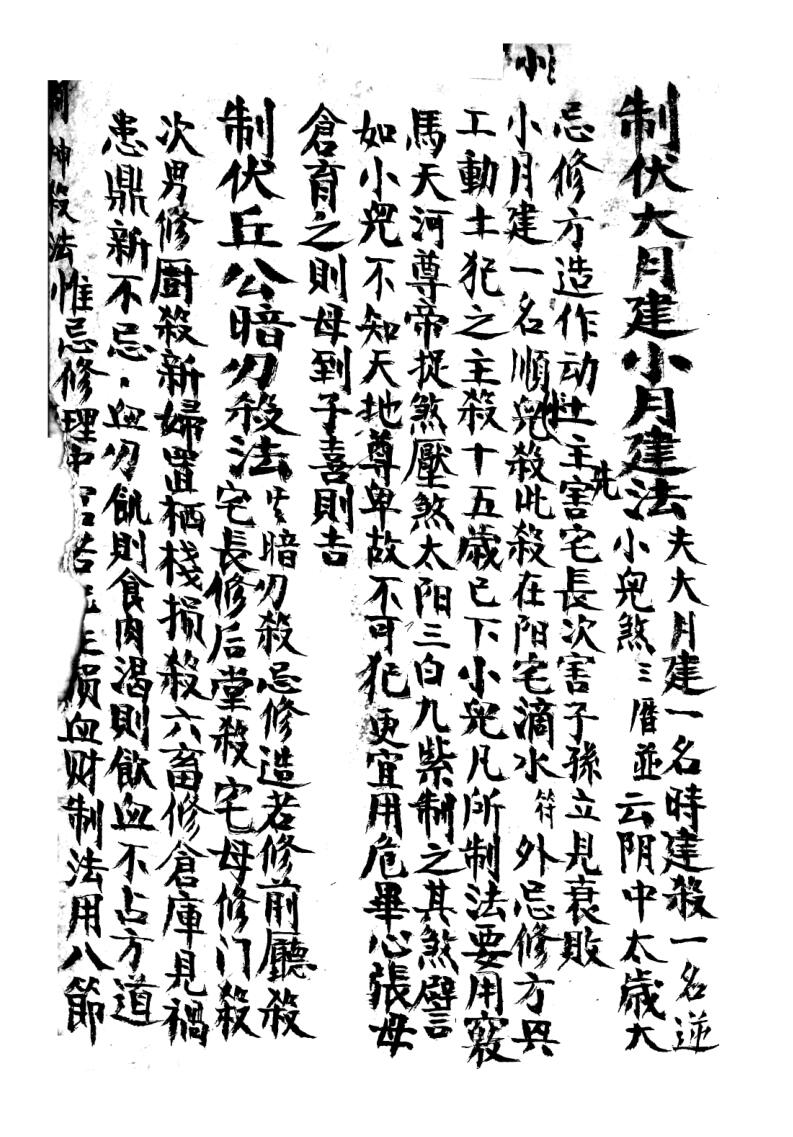 小
制伏大月建小月建法
夫大月建一名時建殺一名逆
小兒煞三曆並云阴中太歲大
忌修方造作动土主先害宅長次害子孫立見衰敗
小月建一名順兒殺此殺在阳宅滴水符外忌修方與
工動土犯之主殺十五歲已下小兒凡所制法要用竅
馬天河尊帝捉煞壓煞太阳三白九紫制之其煞譬言
如小兒不知天地尊卑故不可犯更宜用危畢心張母
倉育之則母到子喜則吉
制伏丘公暗刃殺法
暗刃殺忌修造若修前廳殺
宅長修后堂殺宅母修门殺
次男修廚殺新婦置栖棧損殺六畜修倉庫見禍
患鼎新不忌血刃飢則食肉渴則飲血不占方道
神殺法惟忌修理中宮若 損血财制法用八節